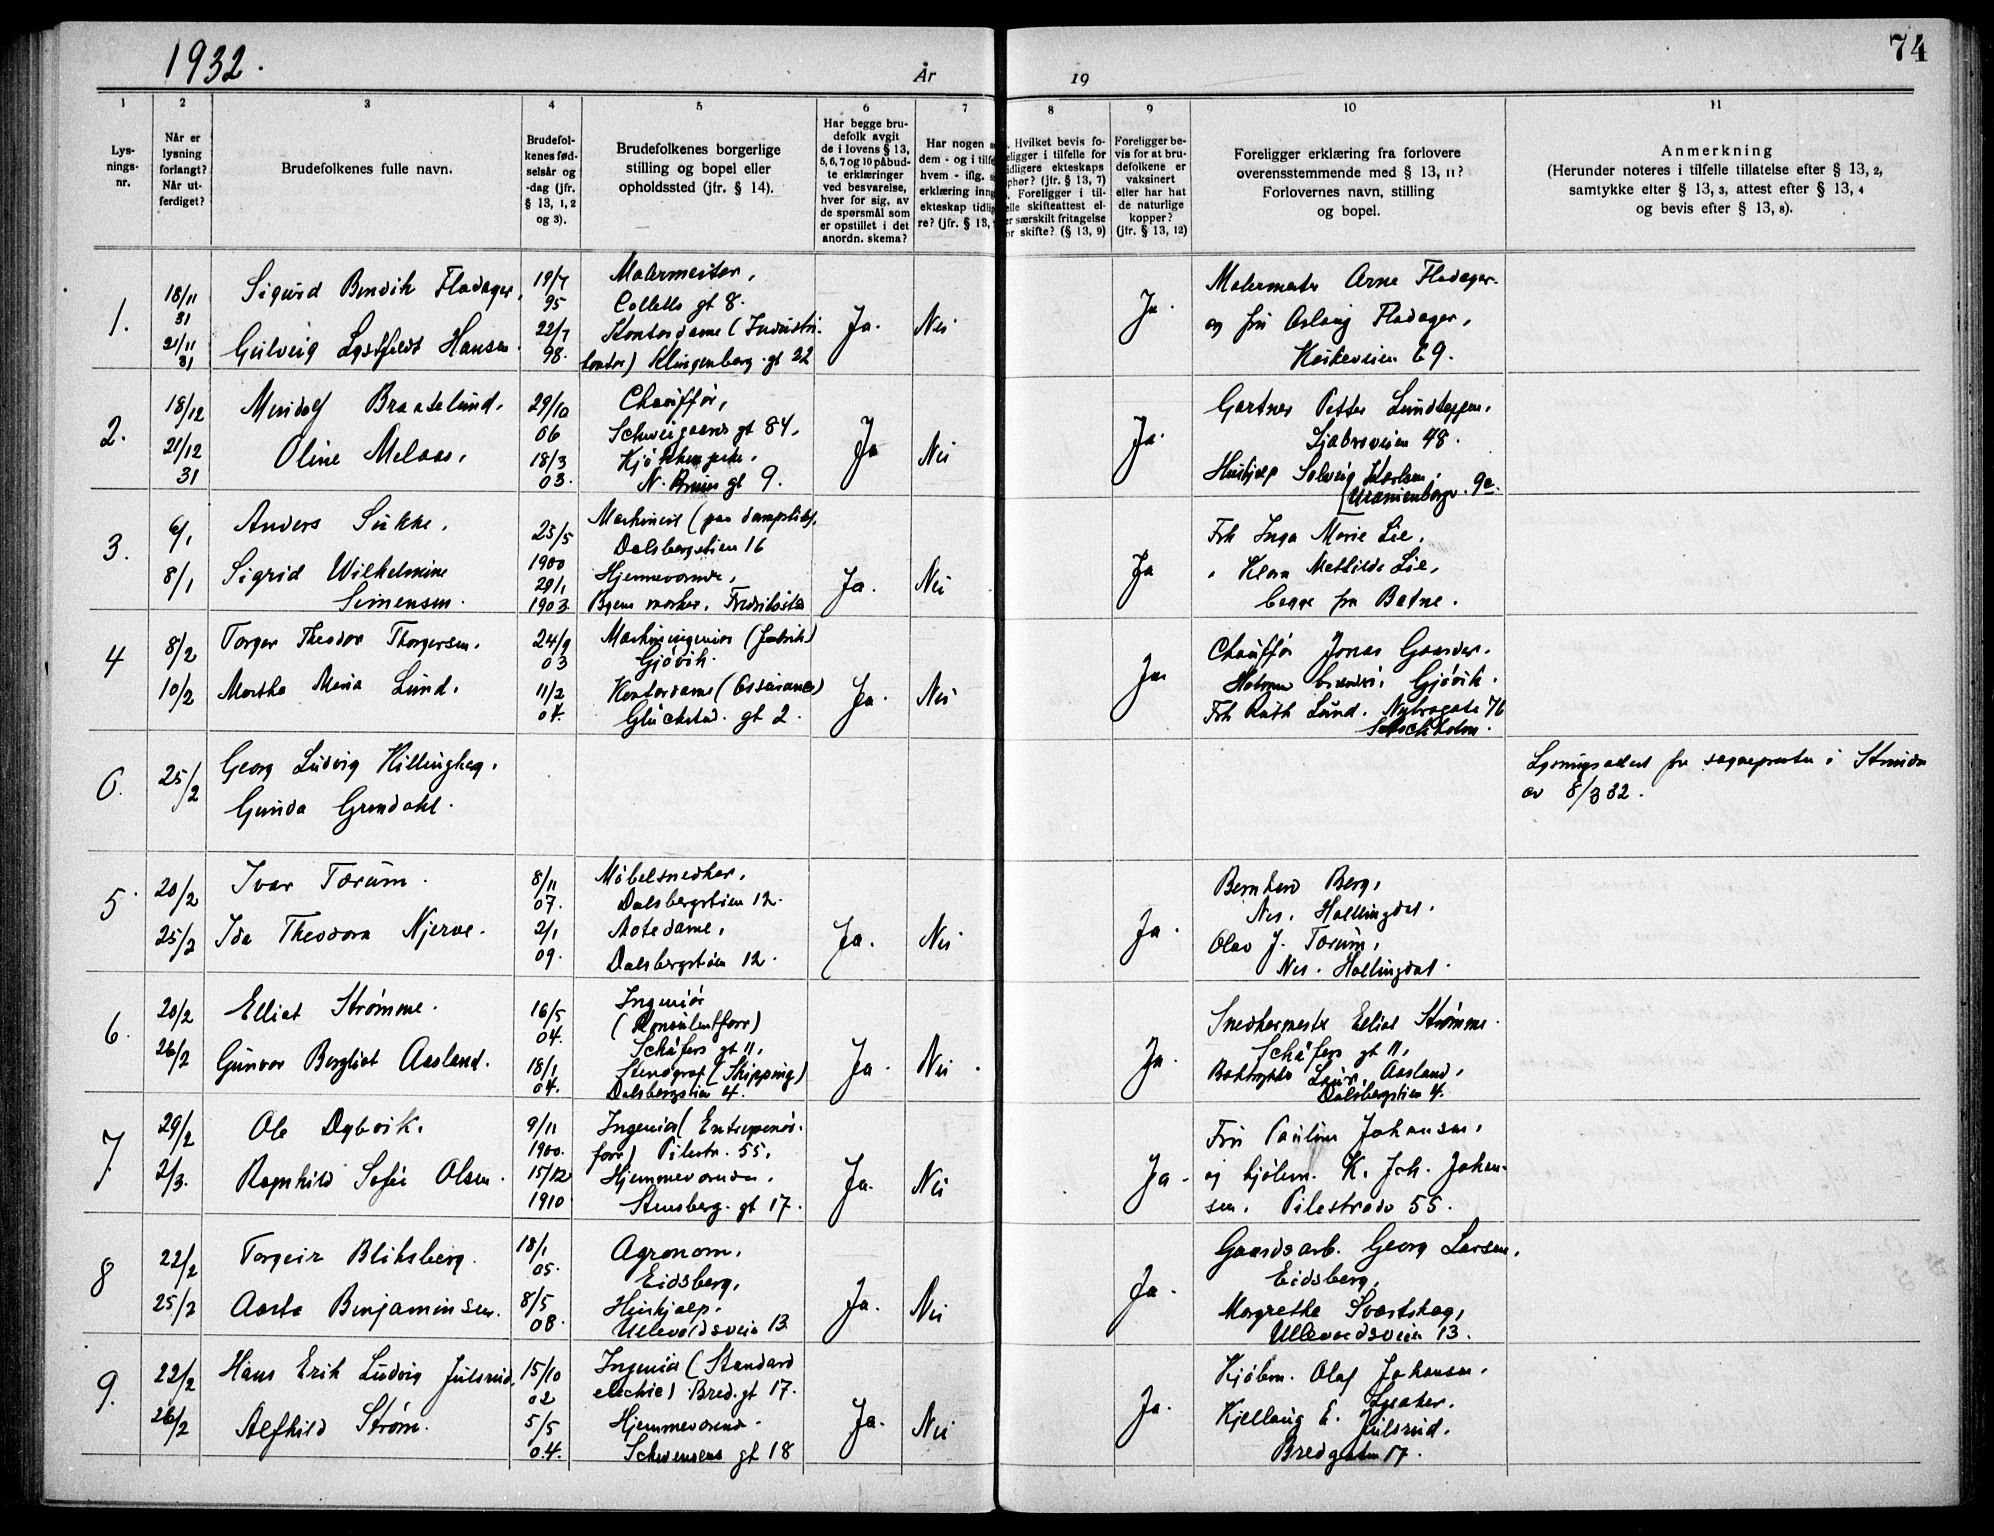 1932.
År
19
74
1 2 3 4 5 6 7 8 9 10 11
Lys-
nings-
nr.
Når er
lysning
forlangt?
Når ut-
ferdiget?
Brudefolkenes fulle navn.
Brudefol-
kenes fød-
selsår og
-dag (jfr.
§ 13, 1, 2
og 3).
Brudefolkenes borgerlige
stilling og bopel eller
opholdssted (jfr. § 14).
Har begge bru-
defolk avgit
de i lovens § 13,
5, 6, 7 og 10 påbud-
te erklæringer
ved besvarelse,
hver for sig, av
de spørsmål som
er opstillet i det
anordn. skema?
Har nogen a
dem - og i tilfe
hvem - iflg.
erklæring inng
ekteskap tidlig
re? (jfr. § 13,
Hvilket bevis fo-
eligger i tilfelle for
idligere ekteskaps
phør? (jfr. § 13, 7)
Foreligger i til-
elle skifteattest el-
er særskilt fritagelse
or skifte? (§ 13, 9)
Foreligger be-
vis for at bru-
defolkene er
vaksinert
eller har hat
de naturlige
kopper?
(jfr. § 13, 12)
Foreligger erklæring fra forlovere
overensstemmende med § 13, 11?
Forlovernes navn, stilling
og bopel.
Anmerkning
(Herunder noteres i tilfelle tillatelse efter § 13, 2,
samtykke etter § 13, 3, attest efter § 13, 4
og bevis efter § 13, 8).
1.
18/11
31
21/11
31
Sigurd Bendik Fladager,
Gulveig Lystfeldt Hansen
19/7
95
22/7
98.
Malermester,
Colletts gt 8.
Kontordame (Industri-
kontor) Klingenberg gt 22
Ja.
Nei
Ja.
Malermester Arne Fladager
og fru Aslaug Fladager,
69.
2.
18/12
21/12
31
Braatelund.
Oline Melaas,
29/10
06
18/3
03.
Chauffør,
Schweigaards gt 84,
N. Bruns gt 9.
Ja
Nei
Ja.
Gartner Petter
Ljabruveien 48.
Hushjelp Solveig Karlsen,
Uranienborgv. 9e.
3.
6/1
8/1
Anders
Sigrid Wilhelmine
Simensen.
25/5
1900
29/1
1903
Maskinist (paa dampskib).
Dalsbergstien 16
Hjemmeværende,
Byens marker, Fredrikstad
Ja.
Nei
Ja
Frk Inga Marie Lie,
" Klara Mathilde Lie,
begge fra Botne.
4
8/2
10/2
Torger Theodor Thorgersen.
Martha Maria Lund.
24/9
03
11/2
04.
Maskiningeniør (fabrik)
Gjøvik.
Kontordame (Assurance)
Glückstad. gt 2.
Ja.
Nei
Ja
Chauffør Jonas Gaarder.
Gjøvik.
Frk Ruth Lund. Nybrogate 76
Stockholm.
6.
25/2
Georg Ludvig Killinghag.
Gunda Grendahl.
Lysningsattest fra sognepresten i Strinda
av 8/3 32.
5.
20/2
25/2
Ivar Tørum.
Ida Theodora Njerve.
8/11
07.
2/1
09.
Møbelsnedker,
Dalsbergstien 12.
Motedame,
Dalsbergstien 12.
Ja.
Nei
Ja.
Bernhard Berg,
Nes. Hallingdal.
Olav J. Tørum,
Nes. Hallingdal.
6.
20/2
26/2
Elliot Strømme.
Gunvor Bergliot Aasland.
16/5
04.
18/1
04.
Ingeniør
(Konsulentforr)
Schäfers gt 11,
Stenograf (Shipping)
Dalsbergstien 4.
Ja.
Nei
Ja.
Snedkermester Elliot Strømme
Schäfers gt 11,
Aasland,
Dalsbergstien 4.
7.
29/2
2/3.
Ole Dybvik.
Ragnhild Sofie Olsen.
9/11
1900.
15/12
1910
Ingeniør (Entreprenør-
forr) Pilestr. 55,
Hjemmeværende.
Stensberg. gt 17.
Ja.
Nei
Ja.
Fru Pauline Johansen,
og kjøbm. K. Joh. Johan-
sen, Pilestrædet 55.
8
22/2
25/2
Torgeir Bliksberg.
Aasta Benjaminsen.
18/1
05.
8/5
08.
Agronom,
Eidsberg,
Hushjælp.
Ullevoldsveien 13
Ja.
Nei
Ja.
Gaardsarb. Georg Larsen,
Eidsberg,
Margrethe Svartshag,
Ullevoldsveien 13.
9.
22/2
26/2
Hans Erik Ludvig Julsrud,
Alfhild Strøm.
15/10
02
5/5
04.
Ingeniør (Standard
electric) Bred. gt 17.
Hjemmeværende.
Schwensens gt 18
Ja.
Nei
Ja.
Kjøbm. Olaf Johansen,
Lysaker.
Kjellaug E. Julsrud.
Bredgaten 17.